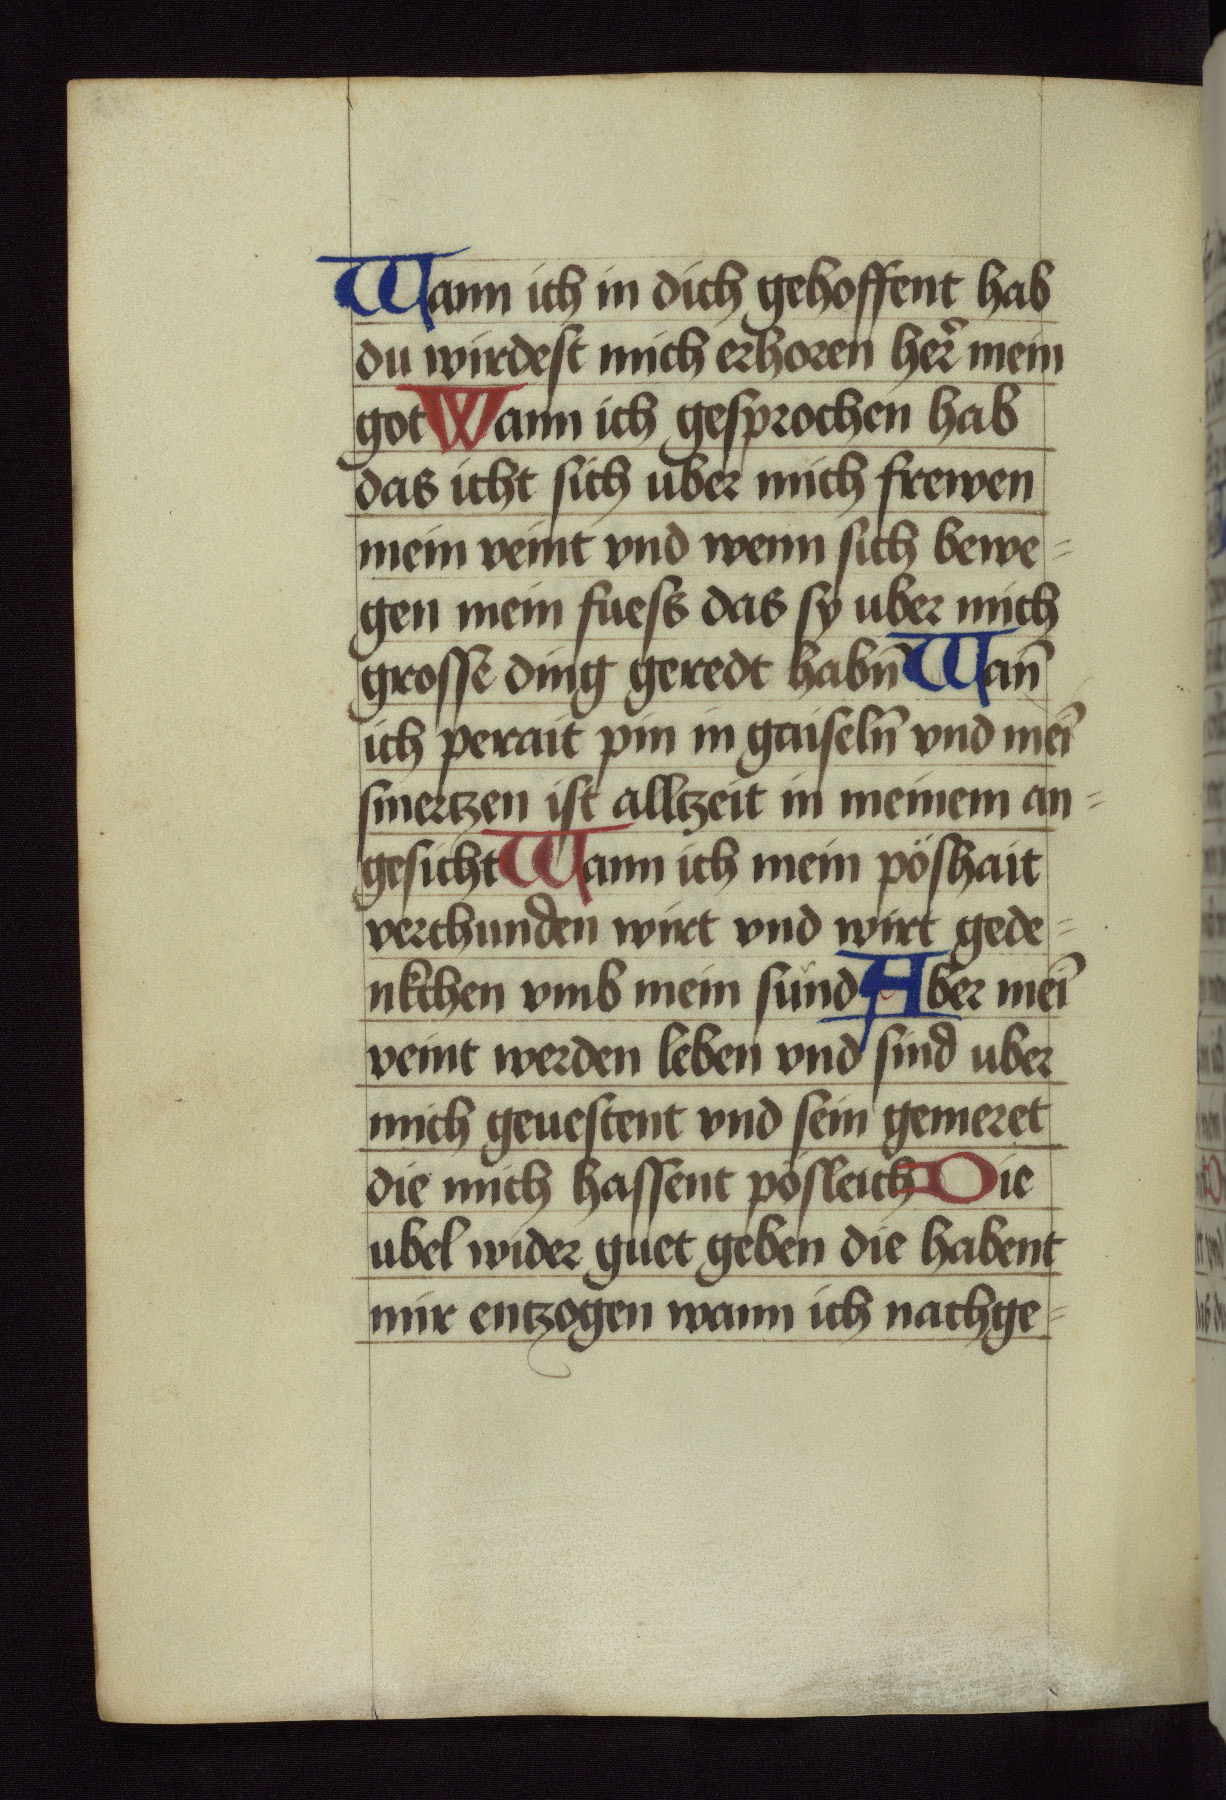 Wann ich in dich gehoffent hab
du wirdest mich erhoren her̃ mein
got Wann ich gesprochen hab
das icht sich uber mich frewen
mein veint vnd wenn sich bewe=
gen mein fuess das sy uber mich
grosse ding geredt habn̄ Wan̄
ich perait pin in gaiseln̄ vnd mei̅
smertzen ist alltzeit in meinem an=
gesicht Wann ich mein pöshait
verchunden wirt vnd wirt gede=
nkchen vmb mein sünd Aber mei̅
veint werden leben vnd sind uber
mich geuestent vnd sein gemeret
die mich hassent pösleich Die
ubel wider guet geben die habent
mir entzogen wann ich nachge=